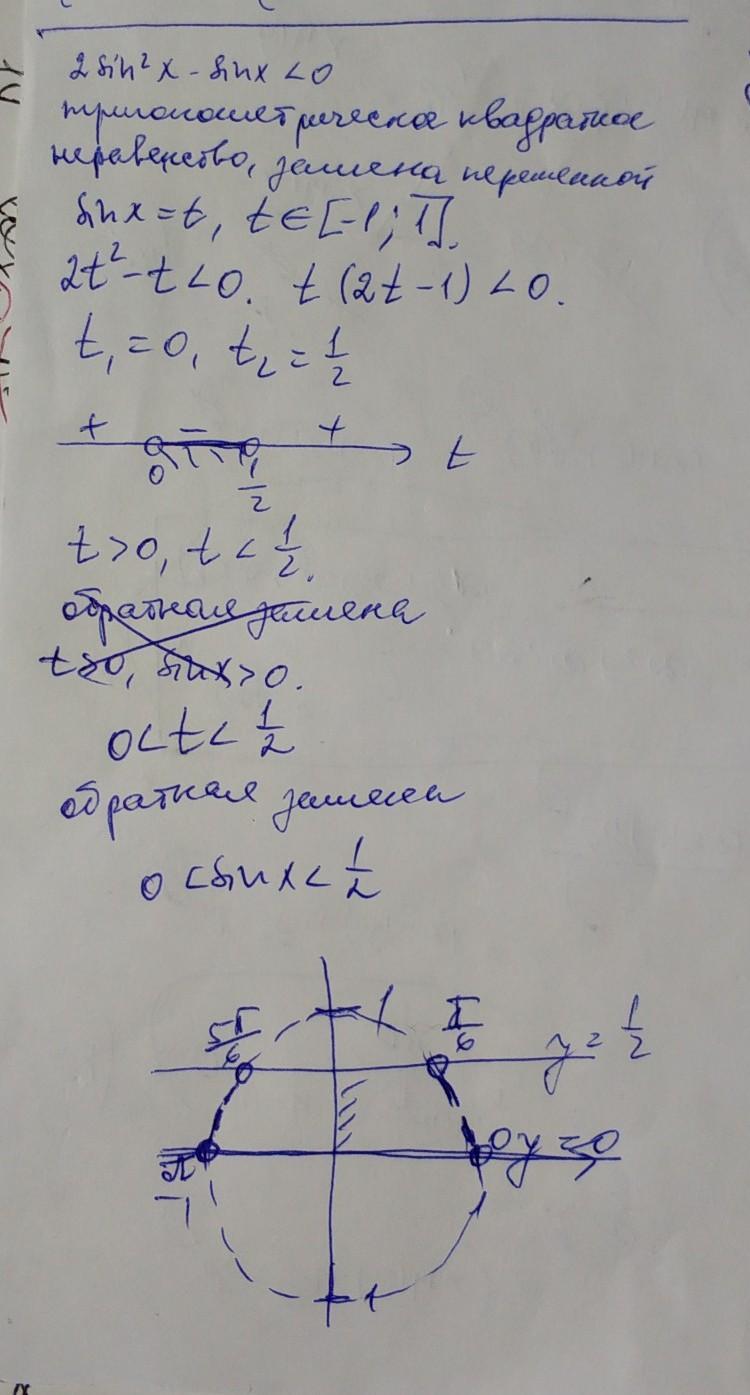 2sin²x - sinx < 0
тригонометрическое квадратное
неравенство, замена переменной
sinx = t, t ∈ [-1; 1].
2t² - t < 0. t (2t - 1) < 0.
t₁ = 0, t₂ = 1/2
+ − +
0 1/2 t
t > 0, t < 1/2.
обратная замена
t > 0, sinx > 0.
0 < t < 1/2
обратная замена
0 < sinx < 1/2
1
5π/6 π/6 y = 1/2
π 0 y = 0
-1